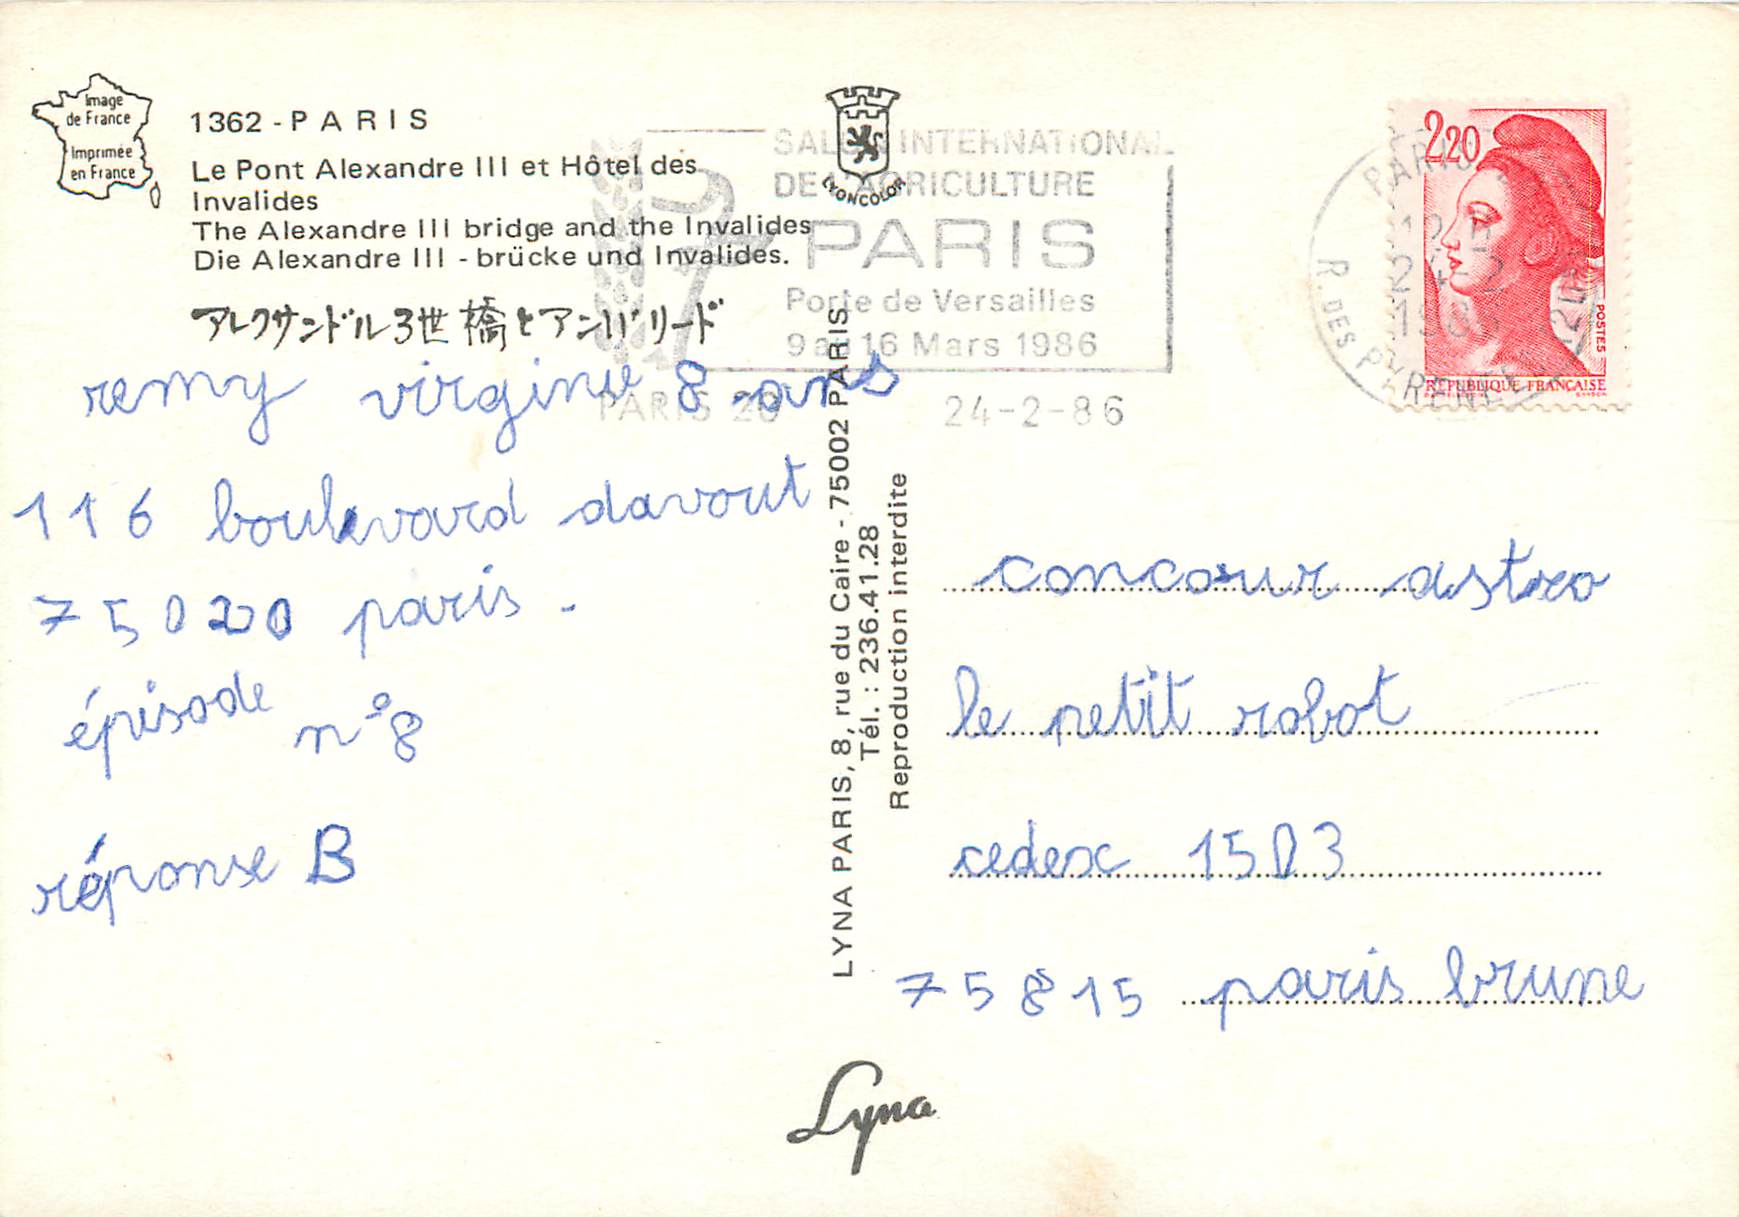 Image
de France
Imprimée
en France
1362 - PARIS
Le Pont Alexandre III et Hôtel des
Invalides
The Alexandre III bridge and the Invalides
Die Alexandre III - brücke und Invalides.
アレクサンドル3世橋とアンバリード
remy virginie 8 ans
116 boulevard davout
75020 paris.
épisode n°8
réponse B
LYONCOLOR
SALON INTERNATIONAL
DE L'AGRICULTURE
PARIS
Porte de Versailles
9 au 16 Mars 1986
PARIS 20 24-2-86
LYNA PARIS, 8, rue du Caire - 75002 PARIS
Tél. : 236.41.28
Reproduction interdite
2,20
POSTES
REPUBLIQUE FRANÇAISE
GANDON
PARIS
24-2
1986
R. DES PYRENEES (20E)
concour astro
le petit robot
cedex 1503
75815 paris brune
Lyna